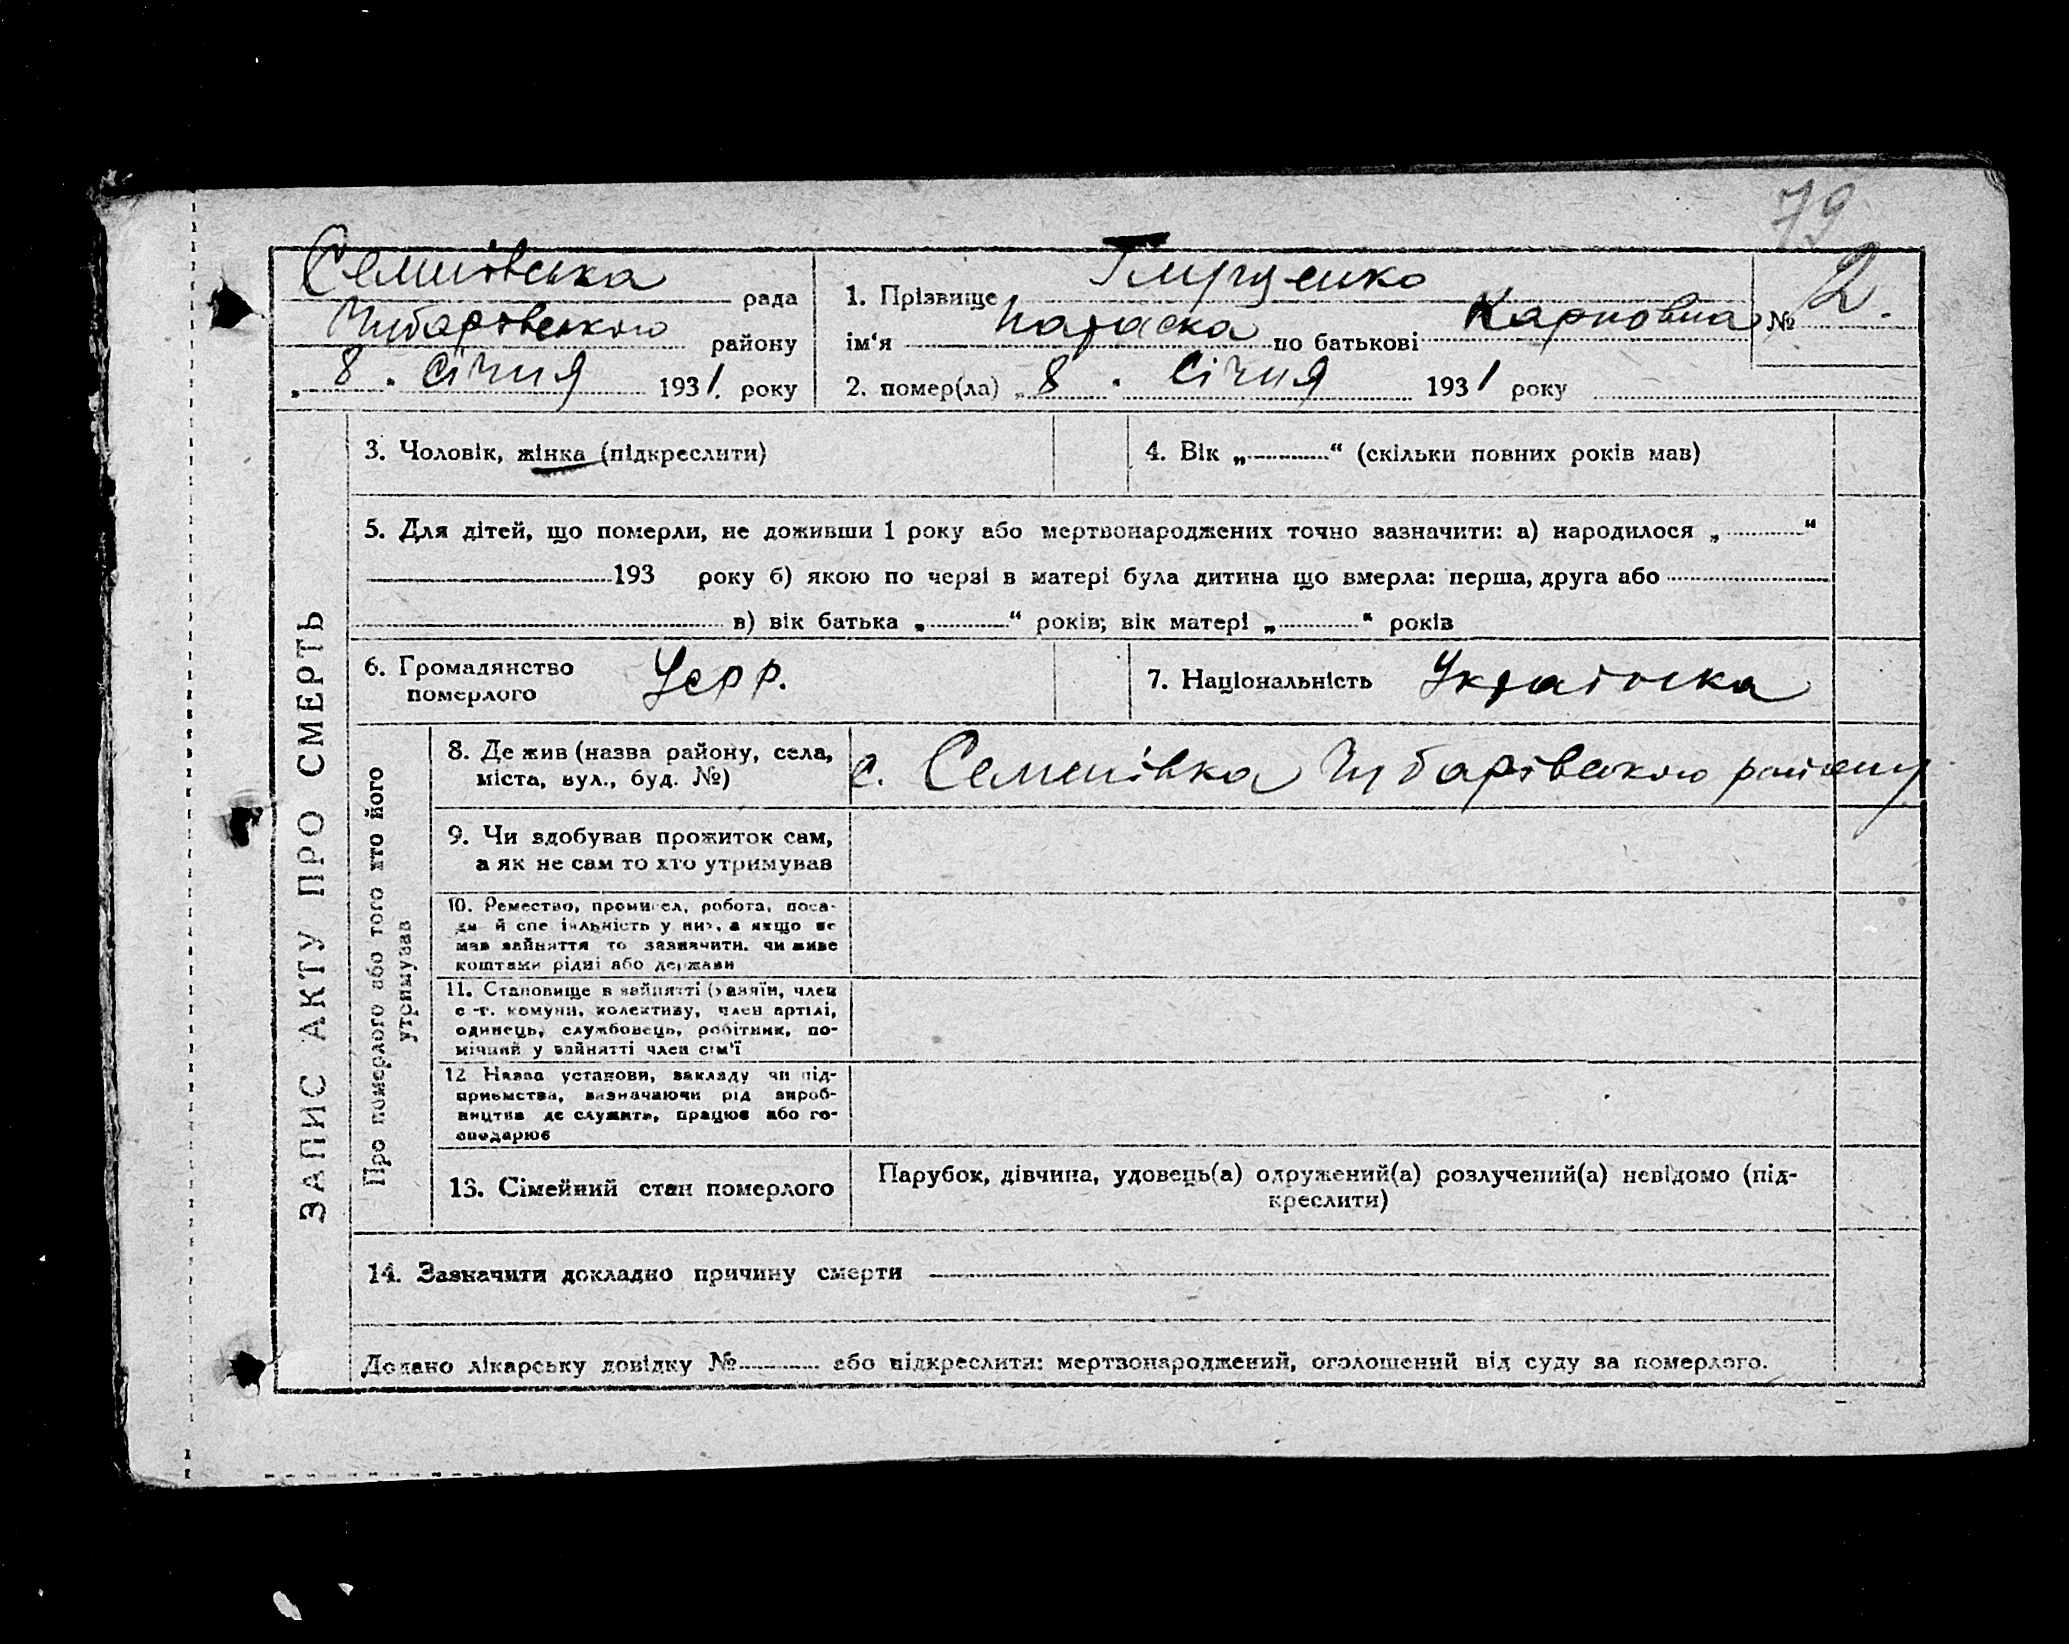 79
Семенівська рада
Чубарівського району
„ 8 . січня 1931. року
1. Прізвище
ім'я Параска по батькові Карповна
№ 2.
2. помер(ла) „ 8 . Січня 1931 року
ЗАПИС АКТУ ПРО СМЕРТЬ
3. Чоловік, жінка (підкреслити)
4. Вік „ “ (скільки повних років мав)
5. Для дітей, що померли, не доживши 1 року або мертвонароджених точно зазначити: а) народилося „ “
193 року б) якою по черзі в матері була дитина що вмерла: перша, друга або
в) вік батька „ “ років; вік матері „ “ років
6. Громадянство
померлого
Усрр.
7. Національність Українка
Про померлого або того хто його
утримував
8. Де жив (назва району, села,
міста, вул., буд. №)
с. Семенівка Чубарівського району
9. Чи здобував прожиток сам,
а як не сам то хто утримував
10. Ремество, промисел, робота, поса-
да й спеціяльність у них, а якщо не
мав зайняття то зазначити, чи живе
коштами рідні або держави
11. Становище в зайнятті (хазяїн, член
с.-г. комуни, колективу, член артілі,
одинець, службовець, робітник, по-
мічний у зайнятті член сім'ї
12 Назва установи, закладу чи під-
приємства, зазначаючи рід вироб-
ництва де служить, працює або го-
сподарює
13. Сімейний стан померлого
Парубок, дівчина, удовець(а) одружений(а) розлучений(а) невідомо (під-
креслити)
14. Зазначити докладно причину смерти
Додано лікарську довідку № або підкреслити: мертвонароджений, оголошений від суду за померлого.